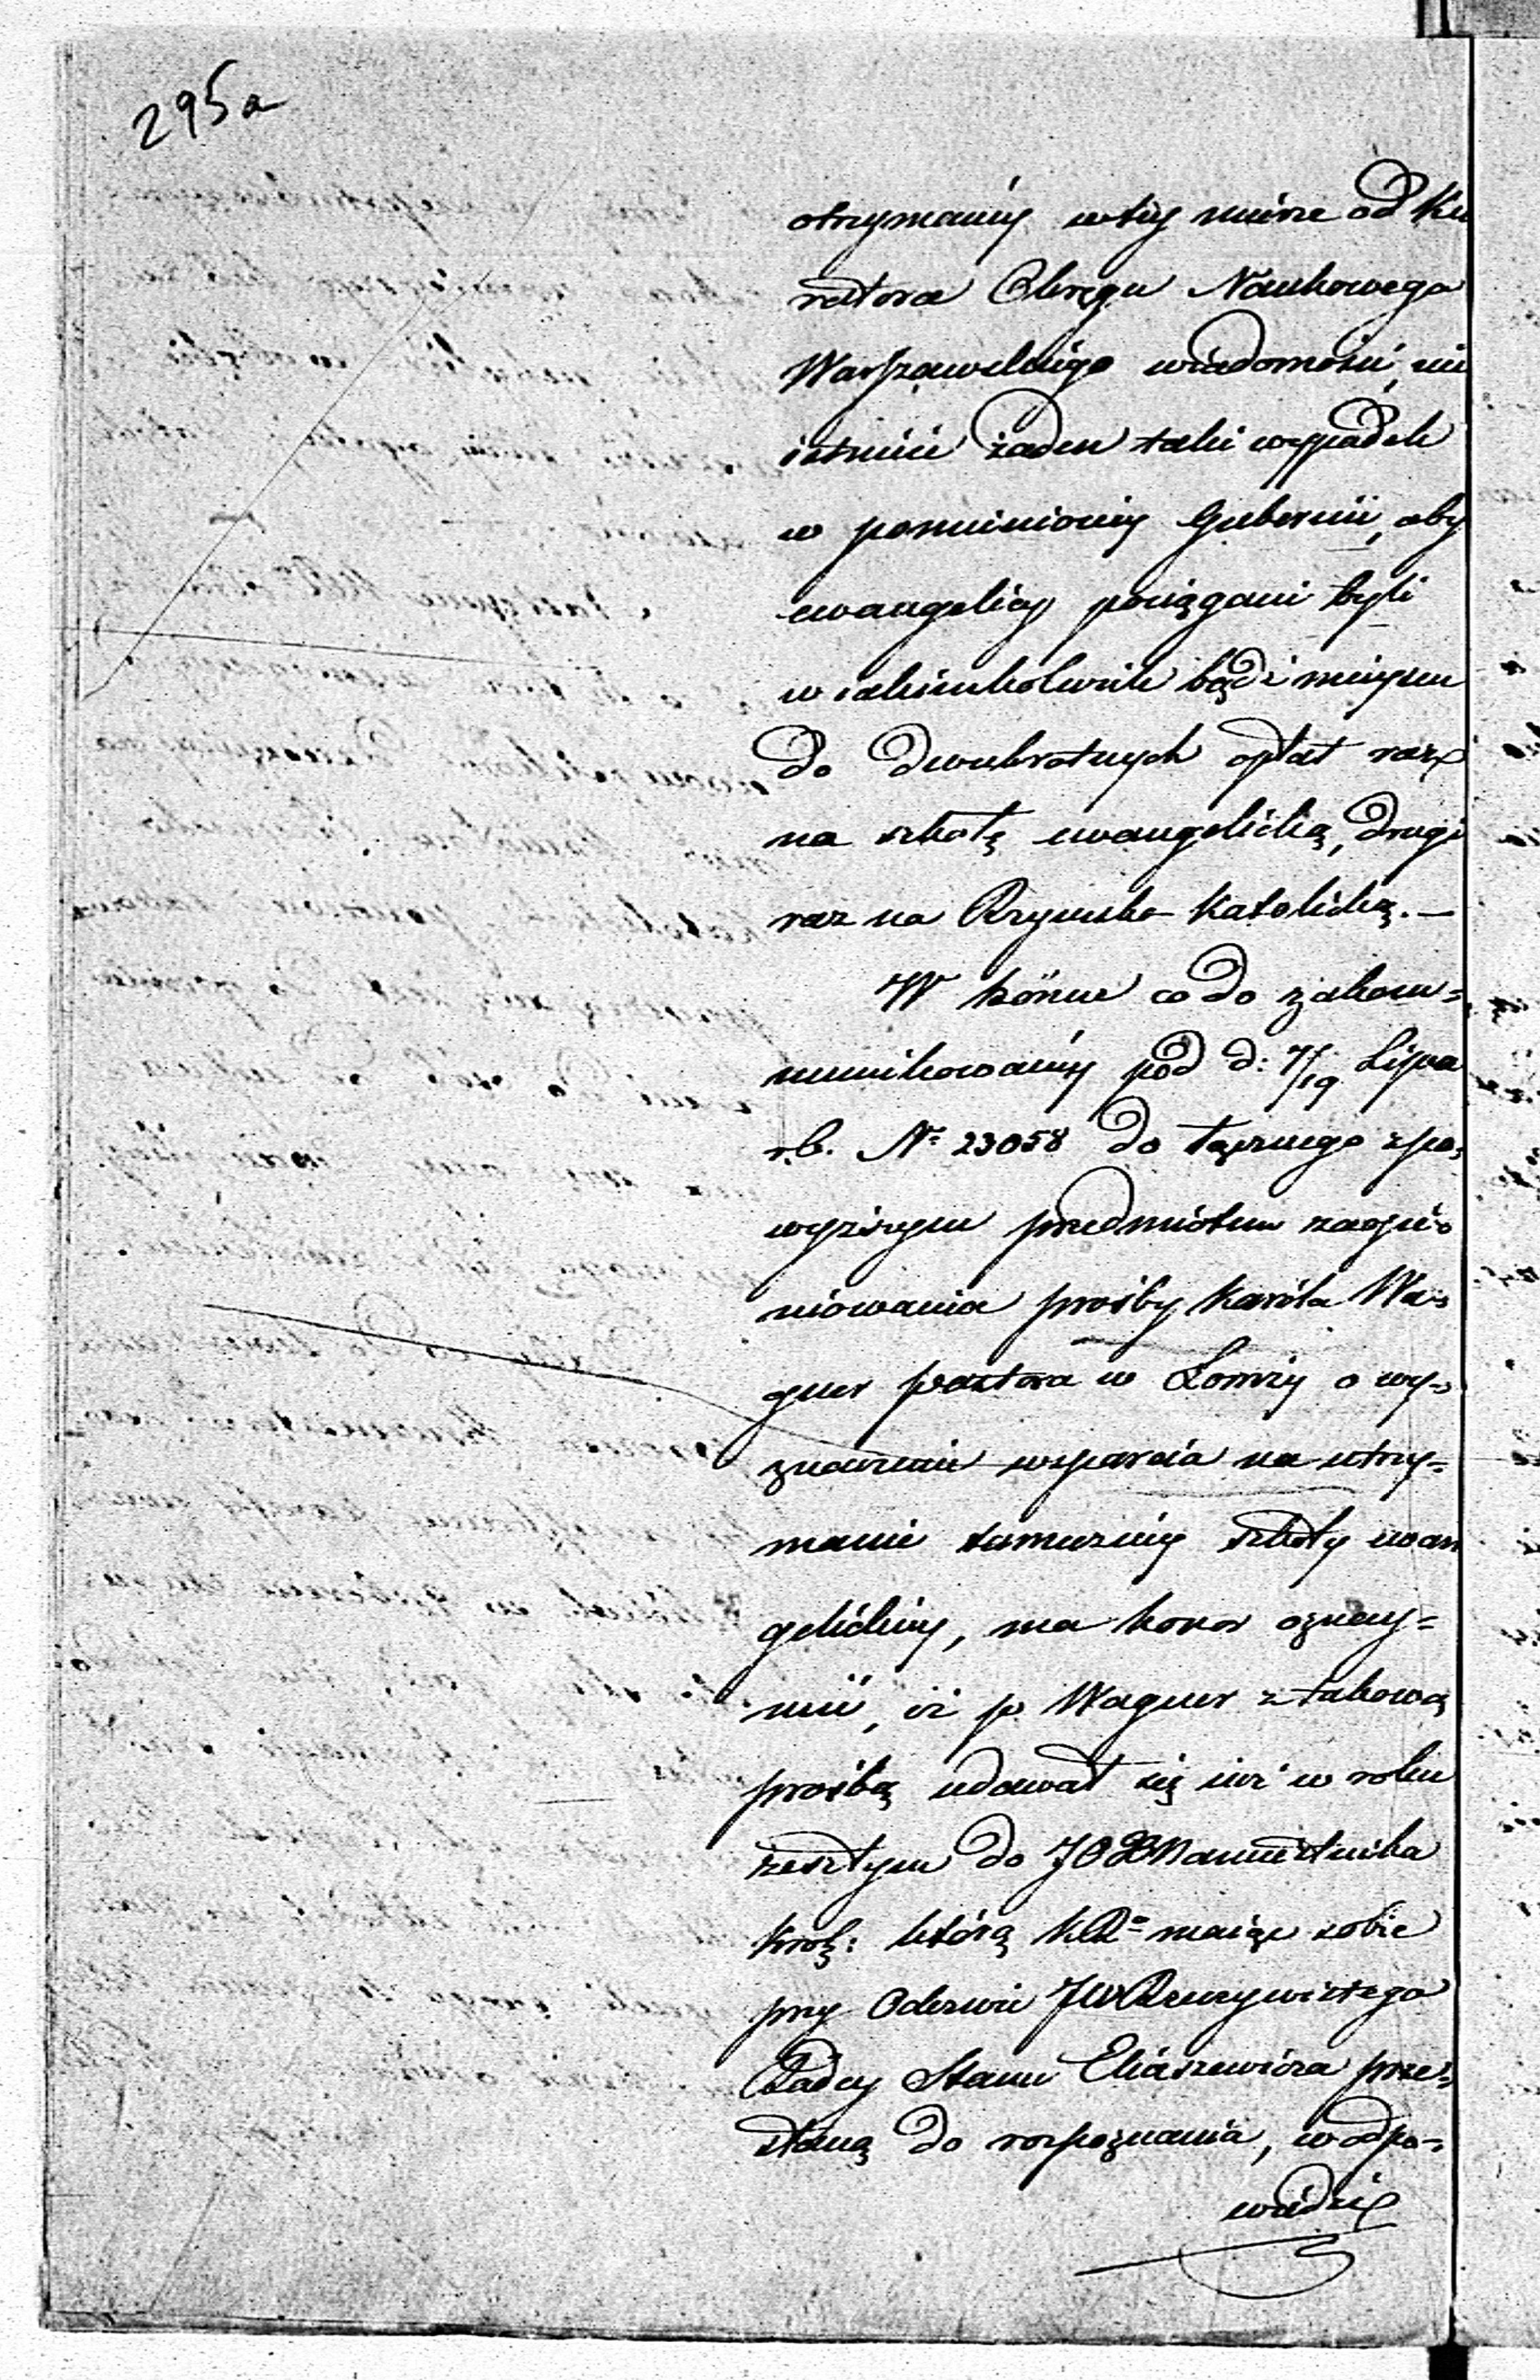 295a
otrzymanéy w téy mierze od Ku
ratora Okręgu Naukowego
Warszawskiego wiadomości, nie
istnieie żaden taki wypadek
w pomienionéy Gubernii, aby
ewangelicy pociągani byli
w iakimkolwiek bądź mieyscu
do dwukrotnych opłat raz
na szkołę ewangelicką, drugi
raz na Rzymsko-Katolicką. —
W końcu co do zakom=
munikowanéy pod d: 7/19 Lipca
r.b. Nº 23058 do łącznego z po=
wyższym przedmiotem zaopi=
niowania prośby Karola Wa=
gner Pastora w Łomży o wy=
znaczenie wsparcia na utrzy=
manie tamecznéy szkoły ewan
gelickiéy, ma honor oznay=
mić, iż p Wagner z takową
prośbą udawał się iuż w roku
zeszłym do JO Namiestnika
Król: którą KR= maiąc sobie
przy Odezwie JW Rzeczywistego
Radcy Stanu Eliaszewicza prze=
słaną do rozpoznania, w odpo=
wiedzi